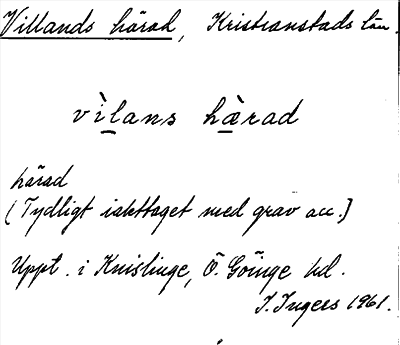 Villands härad, Kristianstads län.
vı̀lans hæ̀rad
härad
(Tydligt iakttaget med grav acc.)
Uppt. i Knislinge, Ö. Göinge hd.
I. Ingers 1961.